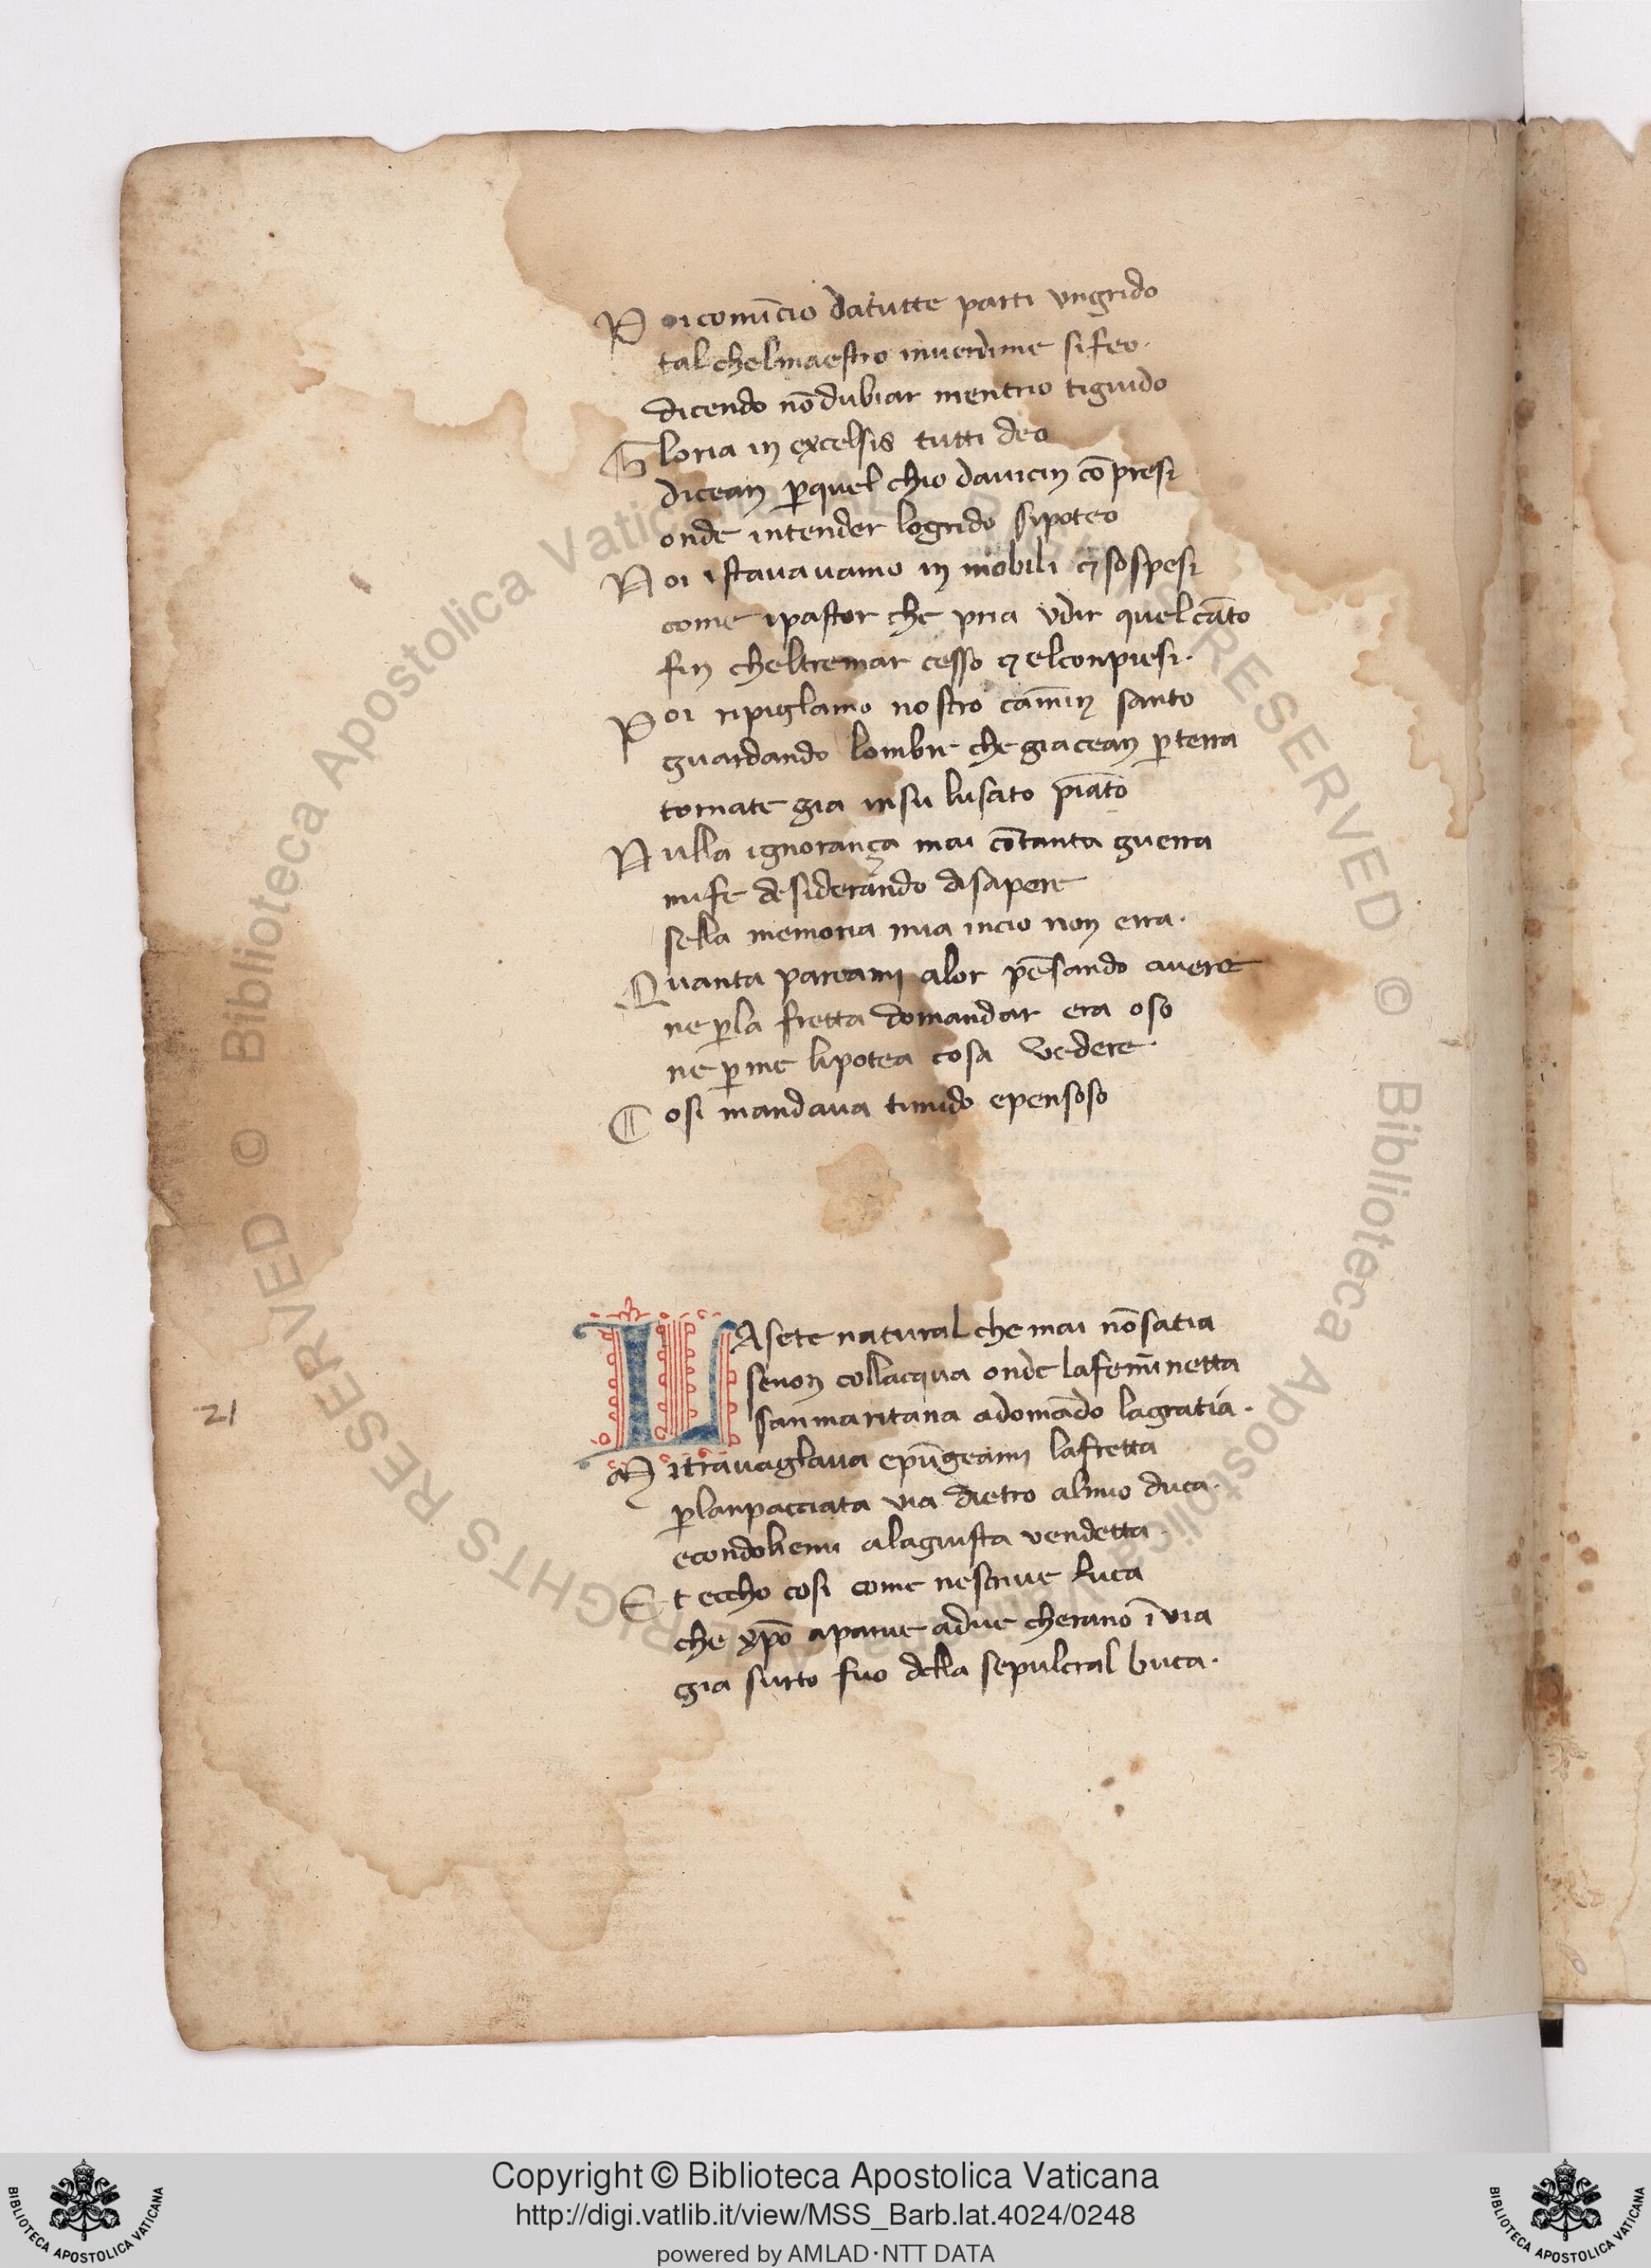 P oi comīcio datutte parti vngrido
tal chelmaestro inuerdime sifeo.
dicendo nō dubiar mentrio tiguido
G loria in excelsis tutti deo
dicean ꝑquel chio dauicin cōpresi
onde intender logrido sipoteo
N oi istauauamo in mobili ⁊ sospesi
come ipastor che pria vdir quel cāto
fin cheltremar cesso ⁊ elconpiesi.
P oi ripiglamo nostro camīn santo
guardando lombre che giacean ꝑ terra
tornate gia insu lusato piāto
N ulla ignorança mai cōtanta guerra
mife desiderando disapere
sella memoria mia incio non erra.
Q uanta pareami alor pēsando auere
ne ꝑla fretta domandar era oso
ne ꝑ me lipotea cosa vedere.
C osi mandaua timido epensoso
LA sete natural che mai nōsatia
senon collacqua onde lafemīnetta
sanmaritana adomādo lagratia.
M itrauaglaua epūgeami lafretta
ꝑlanpacciata uia dietro almio duca.
econdoliemi alagiusta vendetta.
E t eccho cosi come nescriue luca
che xpō aparue adue cherano ī uia
gia surto fuo della sepulcral buca.
21
Copyright © Biblioteca Apostolica Vaticana
http://digi.vatlib.it/view/MSS_Barb.lat.4024/0248
powered by AMLAD·NTT DATA
BIBLIOTECA APOSTOLICA VATICANA
BIBLIOTECA APOSTOLICA VATICANA
Biblioteca Apostolica Vaticana ALL RIGHTS RESERVED © Biblioteca Apostolica Vaticana ALL RIGHTS RESERVED ©